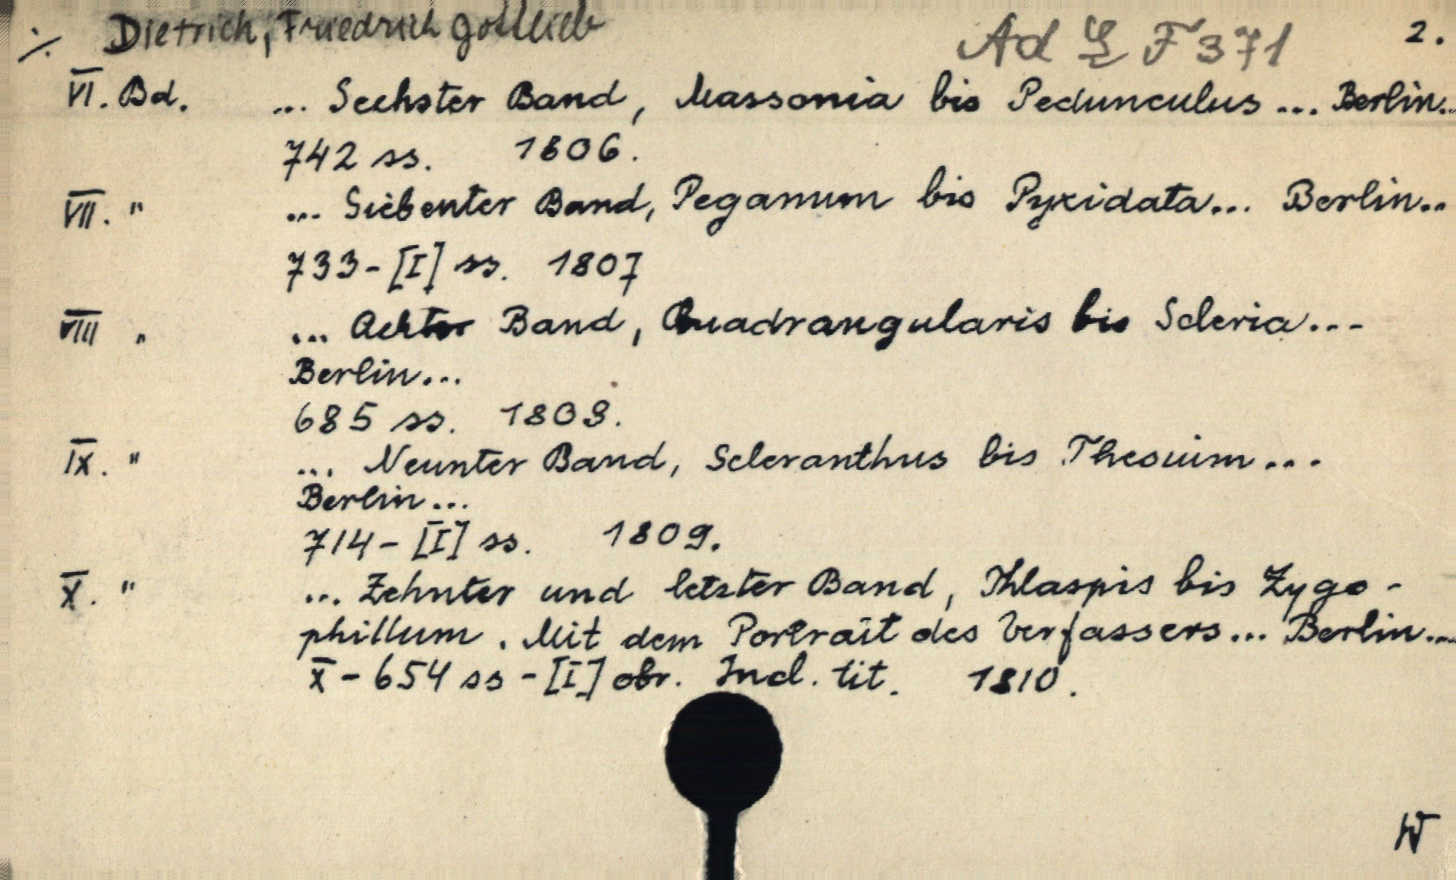 ./. Dietrich, Friedrich Gottlieb Ad F 371 2.
VI. Bd. ... Sechster Band, Massonia bis Pedunculus ... Berlin...
742 ss. 1806.
VII. " ... Siebenter Band, Peganum bis Pyxidata... Berlin..
733-[I] ss. 1807
VIII " ... Achter Band, Quadrangularis bis Scleria...
Berlin...
685 ss. 1808.
IX. " ... Neunter Band, Scleranthus bis Thesium...
Berlin...
714-[I] ss. 1809.
X. " ... Zehnter und letzter Band, Thlaspis bis Zygo-
phillum. Mit dem Portrait des Verfassers... Berlin...
X-654 ss-[I] obr. Incl. tit. 1810.
W